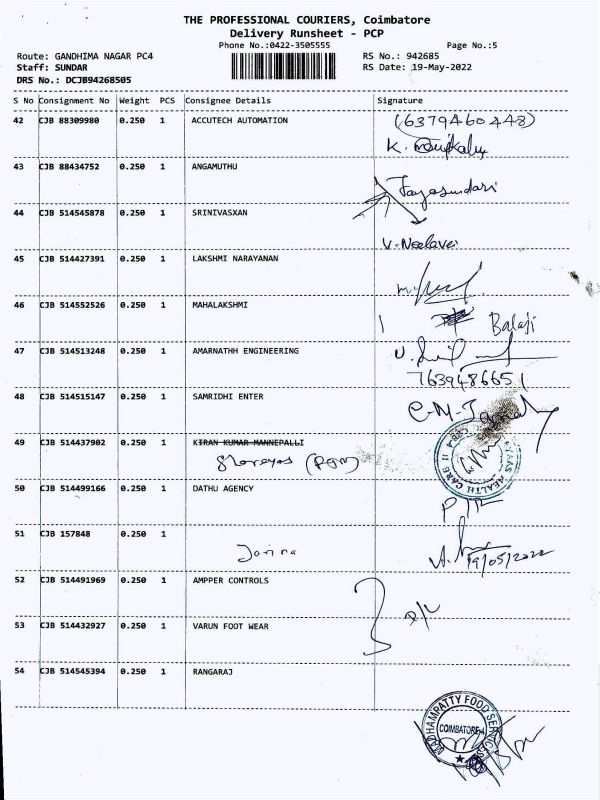 THE PROFESSIONAL COURIERS, Coimbatore
Delivery Runsheet - PCP
Phone No.:0422-3505555
Page No.:5
Route: GANDHIMA NAGAR PC4
RS No.: 942685
Staff: SUNDAR
RS Date: 19-May-2022
DRS No.: DCJB94268505
S No Consignment No Weight PCS Consignee Details Signature
42 CJB 88309980 0.250 1 ACCUTECH AUTOMATION (6379460448)
K.
43 CJB 88434752 0.250 1 ANGAMUTHU
Jayasundari
44 CJB 514545878 0.250 1 SRINIVASXAN
V. Neelaveni
45 CJB 514427391 0.250 1 LAKSHMI NARAYANAN
46 CJB 514552526 0.250 1 MAHALAKSHMI
Balaji
47 CJB 514513248 0.250 1 AMARNATHH ENGINEERING
7639486651
48 CJB 514515147 0.250 1 SAMRIDHI ENTER
C.M.
49 CJB 514437902 0.250 1 KIRAN KUMAR MANNEPALLI
HEALTH CARE
50 CJB 514499166 0.250 1 DATHU AGENCY
51 CJB 157848 0.250 1
19/05/2022
52 CJB 514491969 0.250 1 AMPPER CONTROLS
53 CJB 514432927 0.250 1 VARUN FOOT WEAR
54 CJB 514545394 0.250 1 RANGARAJ
MADHAMPATTY FOOD SERVICE
COIMBATORE-4